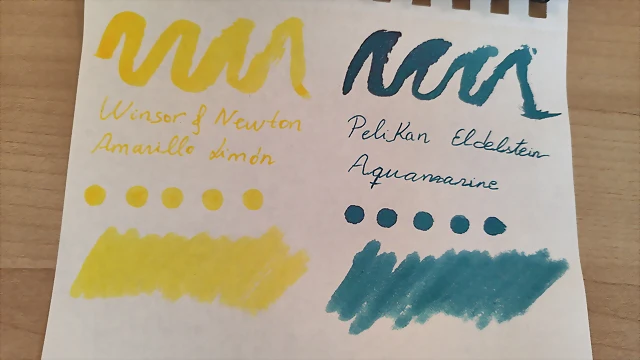 Winsor & Newton
Amarillo Limón
Pelikan Eldelstein
Aquamarine